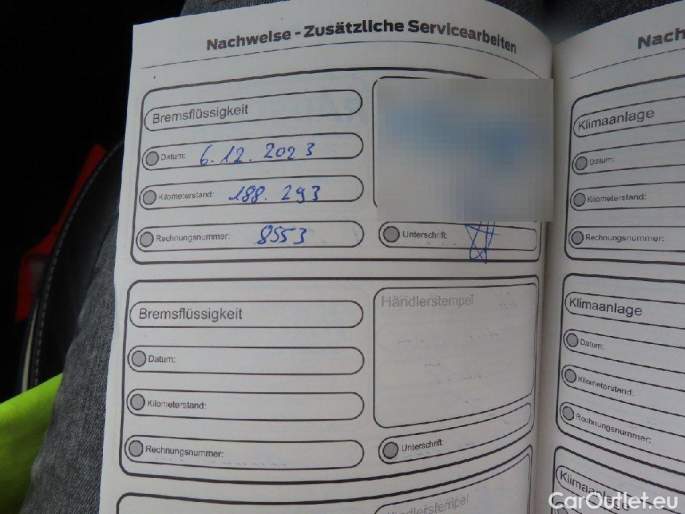 Nachweise - Zusätzliche Servicearbeiten
Bremsflüssigkeit
Datum: 6.12.2023
Kilometerstand: 188.293
Rechnungsnummer: 8553
Unterschrift:
Bremsflüssigkeit
Händlerstempel
Datum:
Kilometerstand:
Rechnungsnummer:
Unterschrift:
Händlerstempel
Nach
Klimaanlage
Datum:
Kilometerstand:
Rechnungsnummer:
Klimaanlage
Datum:
Kilometerstand:
Rechnungsnummer:
Klimaanlage
CarOutlet.eu